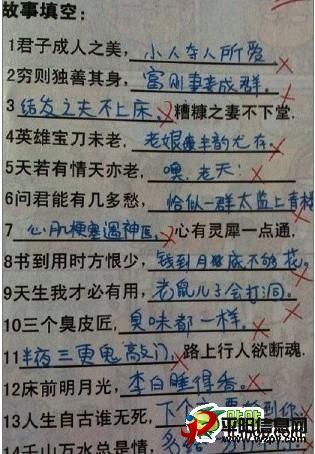 故事填空：
1君子成人之美，小人夺人所爱
2穷则独善其身，富则妻妾成群。
3结发之夫不上床，糟糠之妻不下堂.
4英雄宝刀未老，老娘丰韵尤存。
5天若有情天亦老，噢，老天！
6问君能有几多愁，恰似一群太监上青楼
7心肌梗塞遇神医，心有灵犀一点通。
8书到用时方恨少，钱到月底不够花。
9天生我才必有用，老鼠儿子会打洞。
10三个臭皮匠，臭味都一样。
11半夜三更鬼敲门，路上行人欲断魂.
12床前明月光，李白睡得香。
13人生自古谁无死，下个
到你.
14千山万水总是情，
平阳信息网